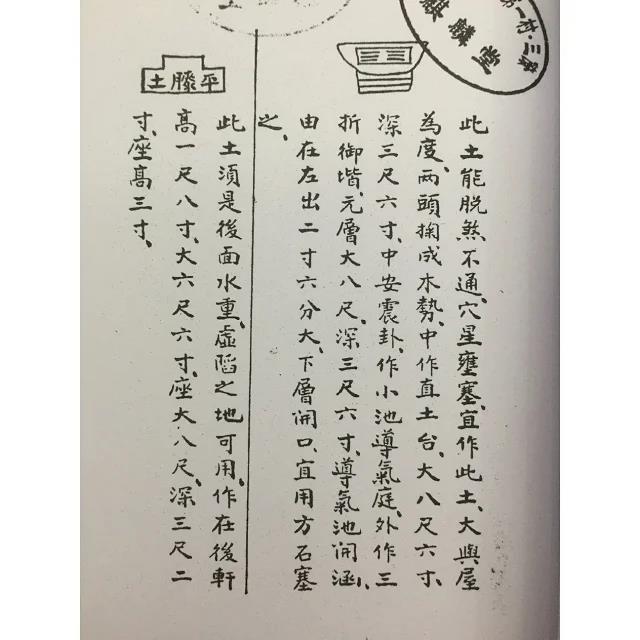 此土能脱煞不通、穴星壅塞、宜作此土、大與屋
為度、兩頭掬成木勢、中作直土台、大八尺六寸、
深三尺六寸、中安震卦、作小池導氣庭、外作三
折御堦、元層大八尺、深三尺六寸、導氣池開涵、
由在左出二寸六分大、下層開口、宜用方石塞
之、
平騰土
此土須是後面水重、虛陷之地可用、作在後軒
高一尺八寸、大六尺六寸、座大八尺、深三尺二
寸、座高三寸、
麒麟堂